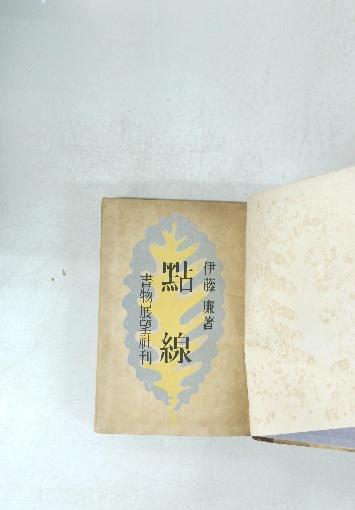 伊藤廉著
點線
書物展望社刊